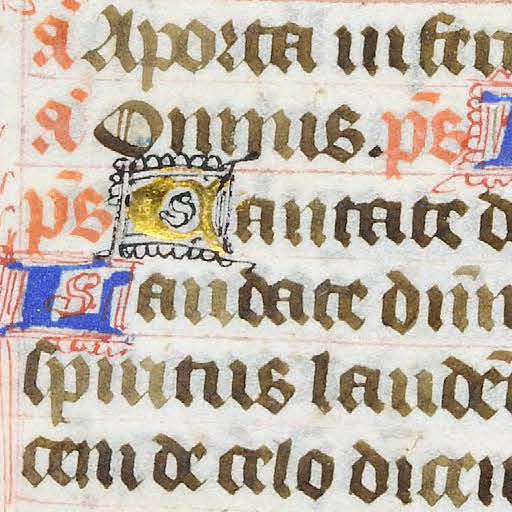 a' A porta inferi
a' Omnis. ps
ps Cantate d
Laudate dn̄m
spiritus laudet
cem de celo dicen